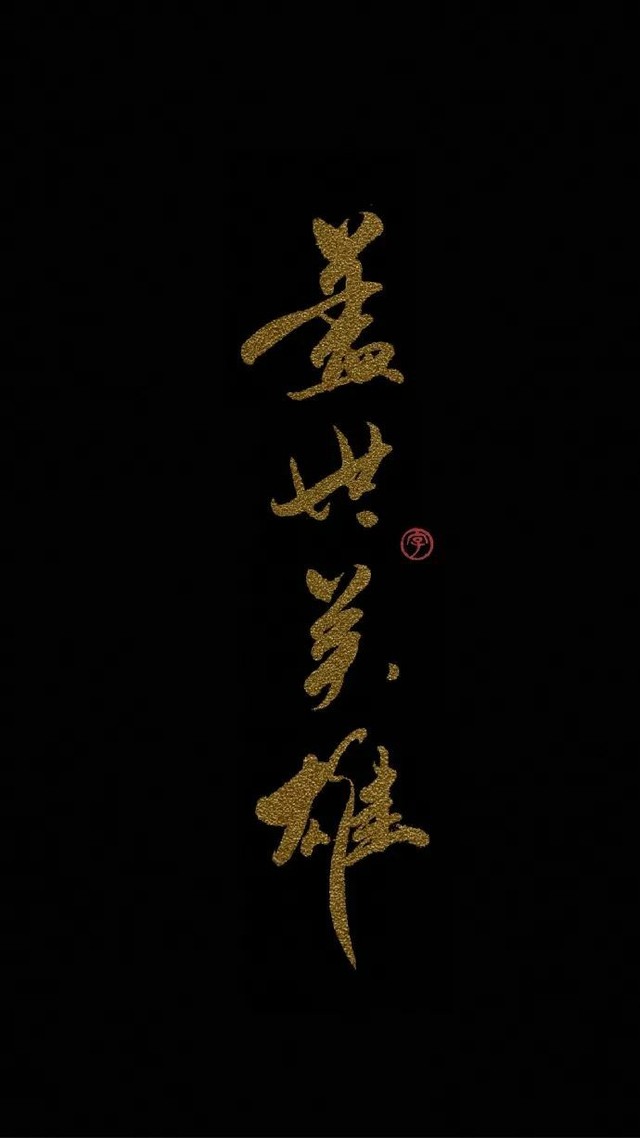 盖世英雄